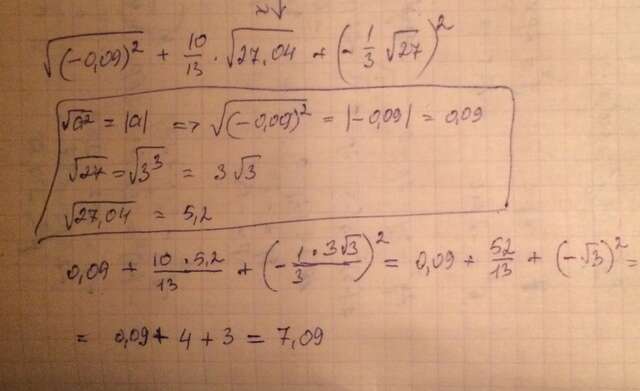 √(-0,09)² + 10/13 · √27,04 + (-1/3 √27)²
√a² = |a| => √(-0,09)² = |-0,09| = 0,09
√27 = √3³ = 3√3
√27,04 = 5,2
0,09 + 10·5,2/13 + (-1·3√3/3)² = 0,09 + 52/13 + (-√3)² =
= 0,09 + 4 + 3 = 7,09